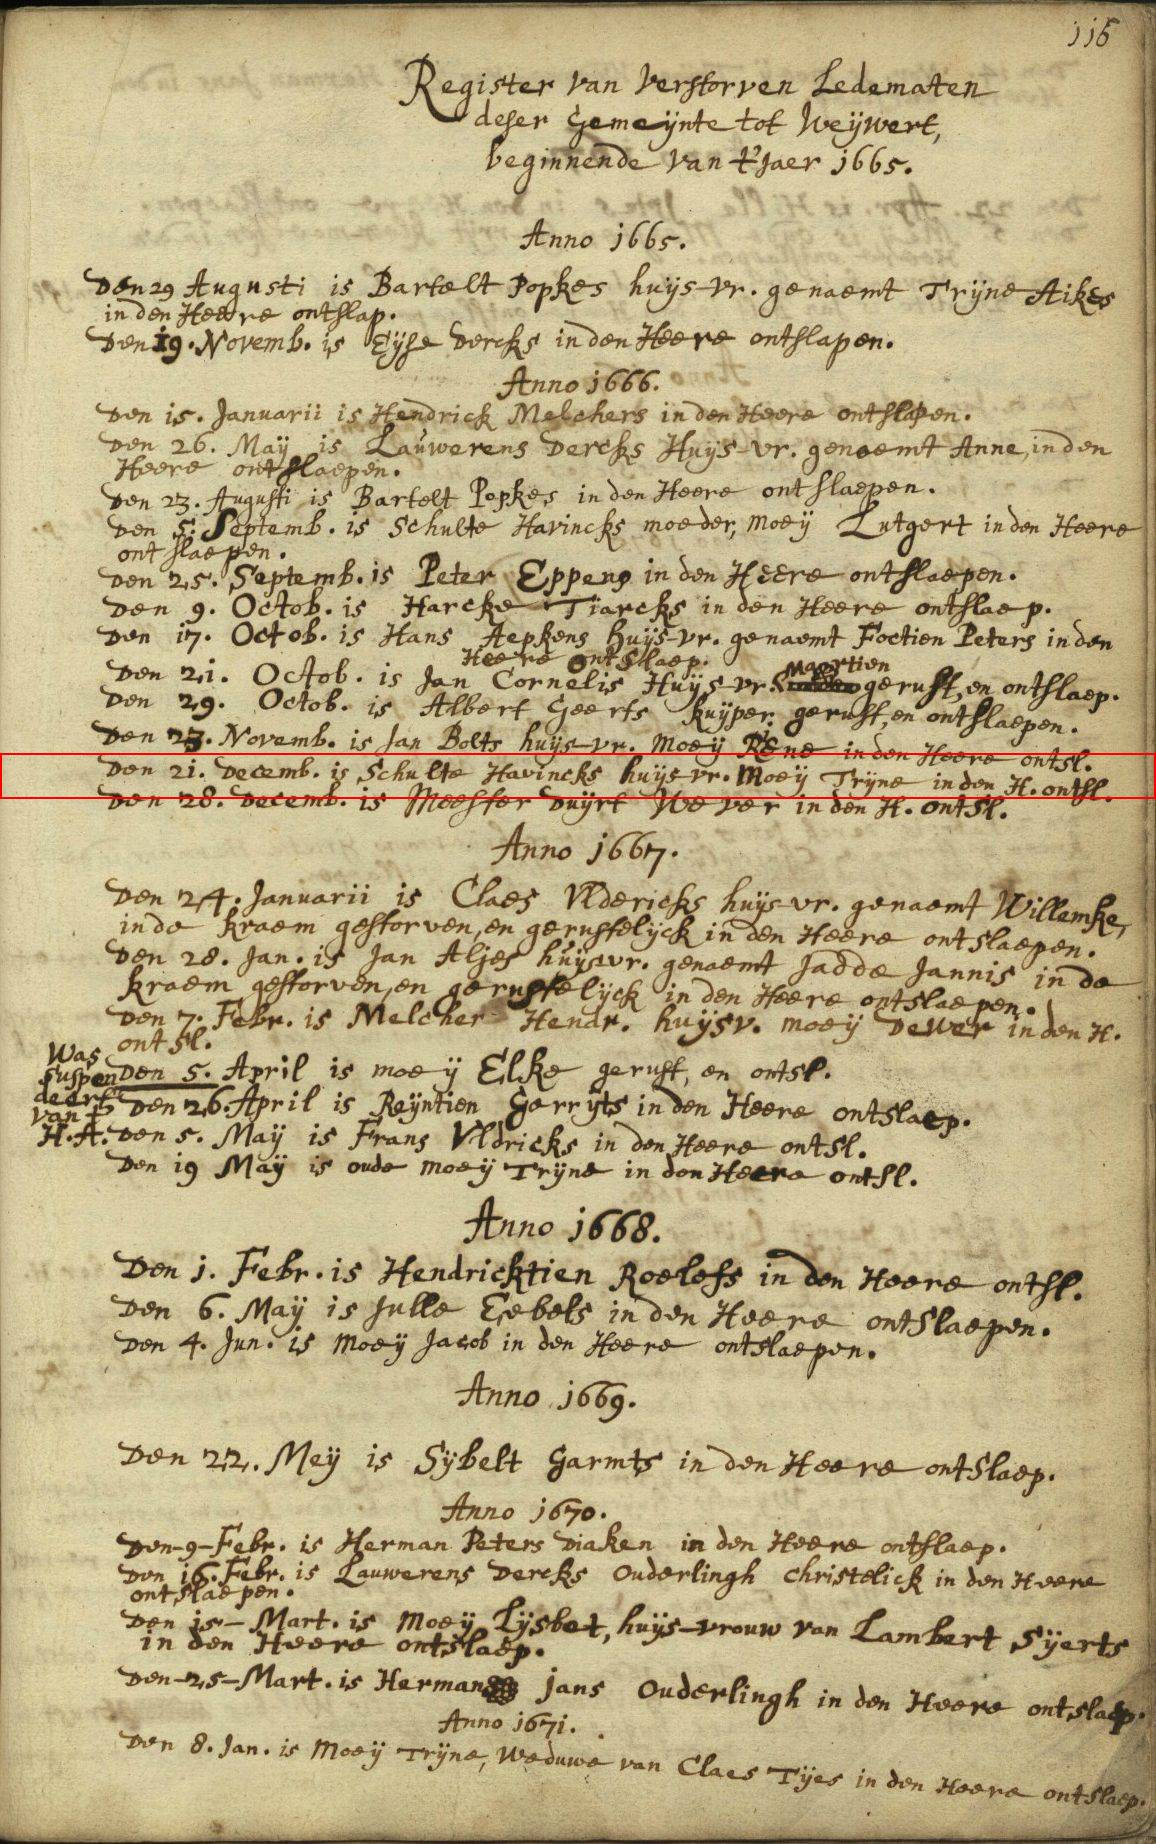 116
Register van Verstorven Ledematen
deser Gemeÿnte tot Weÿwert,
beginnende van t'Jaer 1665.
Anno 1665.
Den 29 Augusti is Bartelt Popkes huÿs-vr. genaemt Trÿne Aikes
in den Heere ontslap.
Den 19. Novemb. is Eÿse Dercks in den Heere ontslapen.
Anno 1666.
Den 15. Januarii is Hendrick Melchers in den Heere ontslapen.
Den 26. Maÿ is Lauwerens Dercks Huÿs-vr. genaemt Anne, in den
Heere ontslaepen.
Den 23. Augusti is Bartelt Popkes in den Heere ontslaepen.
Den 5. Septemb. is Schulte Havincks moeder, moeÿ Lutgert in den Heere
ontslaepen.
Den 25. Septemb. is Peter Eppens in den Heere ontslaepen.
Den 9. Octob. is Harcke Tiarcks in den Heere ontslaep.
Den 17. Octob. is Hans Aepkens huÿs-vr. genaemt Foctien Peters in den
Heere ontslaep.
Den 21. Octob. is Jan Cornelis Huÿs-vr. Maertien gerust, en ontslaep.
Den 29. Octob. is Albert Geerts kuÿper. gerust, en ontslaepen.
Den 23. Novemb. is Jan Bolts huÿs-vr. Moeÿ Rene in den Heere ontsl.
Den 21. Decemb. is Schulte Havincks huÿs-vr. Moeÿ Trÿne in den H. ontsl.
Den 28. Decemb. is Meester Duÿrt Wever in den H. ontsl.
Anno 1667.
Den 24. Januarii is Claes Vldericks huÿs-vr. genaemt Willemke,
in de kraem gestorven, en gerustelÿck in den Heere ontslaepen.
Den 28. Jan. is Jan Aljes huÿsvr. genaemt Jadde Jannis in de
kraem gestorven, en gerustelÿck in den Heere ontslaepen.
Den 7. Febr. is Melcher Hendr. huÿsv. moeÿ Dewer in den H.
ontsl.
Was
suspen
deert
van t
H. A.
Den 5. April is moeÿ Elke gerust, en ontsl.
Den 26. April is Reÿntien Gerrÿts in den Heere ontslaep.
Den 5. Maÿ is Frans Vldricks in den Heere ontsl.
Den 19 Maÿ is oude moeÿ Trÿne in den Heere ontsl.
Anno 1668.
Den 1. Febr. is Hendricktien Roelefs in den Heere ontsl.
Den 6. Maÿ is Julle Eebels in den Heere ontslaepen.
Den 4. Jun. is Moeÿ Jacob in den Heere ontslaepen.
Anno 1669.
Den 22. Meÿ is Sÿbelt Garmts in den Heere ontslaep.
Anno 1670.
Den-9-Febr. is Herman Peters Diaken in den Heere ontslaep.
Den 16. Febr. is Lauwerens Dercks Ouderlingh Christelick in den Heere
ontslaepen.
Den 15-Mart. is Moeÿ Lÿsbet, huÿs-vrouw van Lambert Sÿerts
in den Heere ontslaep.
Den-25-Mart. is Herman Jans Ouderlingh in den Heere ontslaep.
Anno 1671.
Den 8. Jan. is Moeÿ Trÿne, Weduwe van Claes Tÿes in den Heere ontslaep.